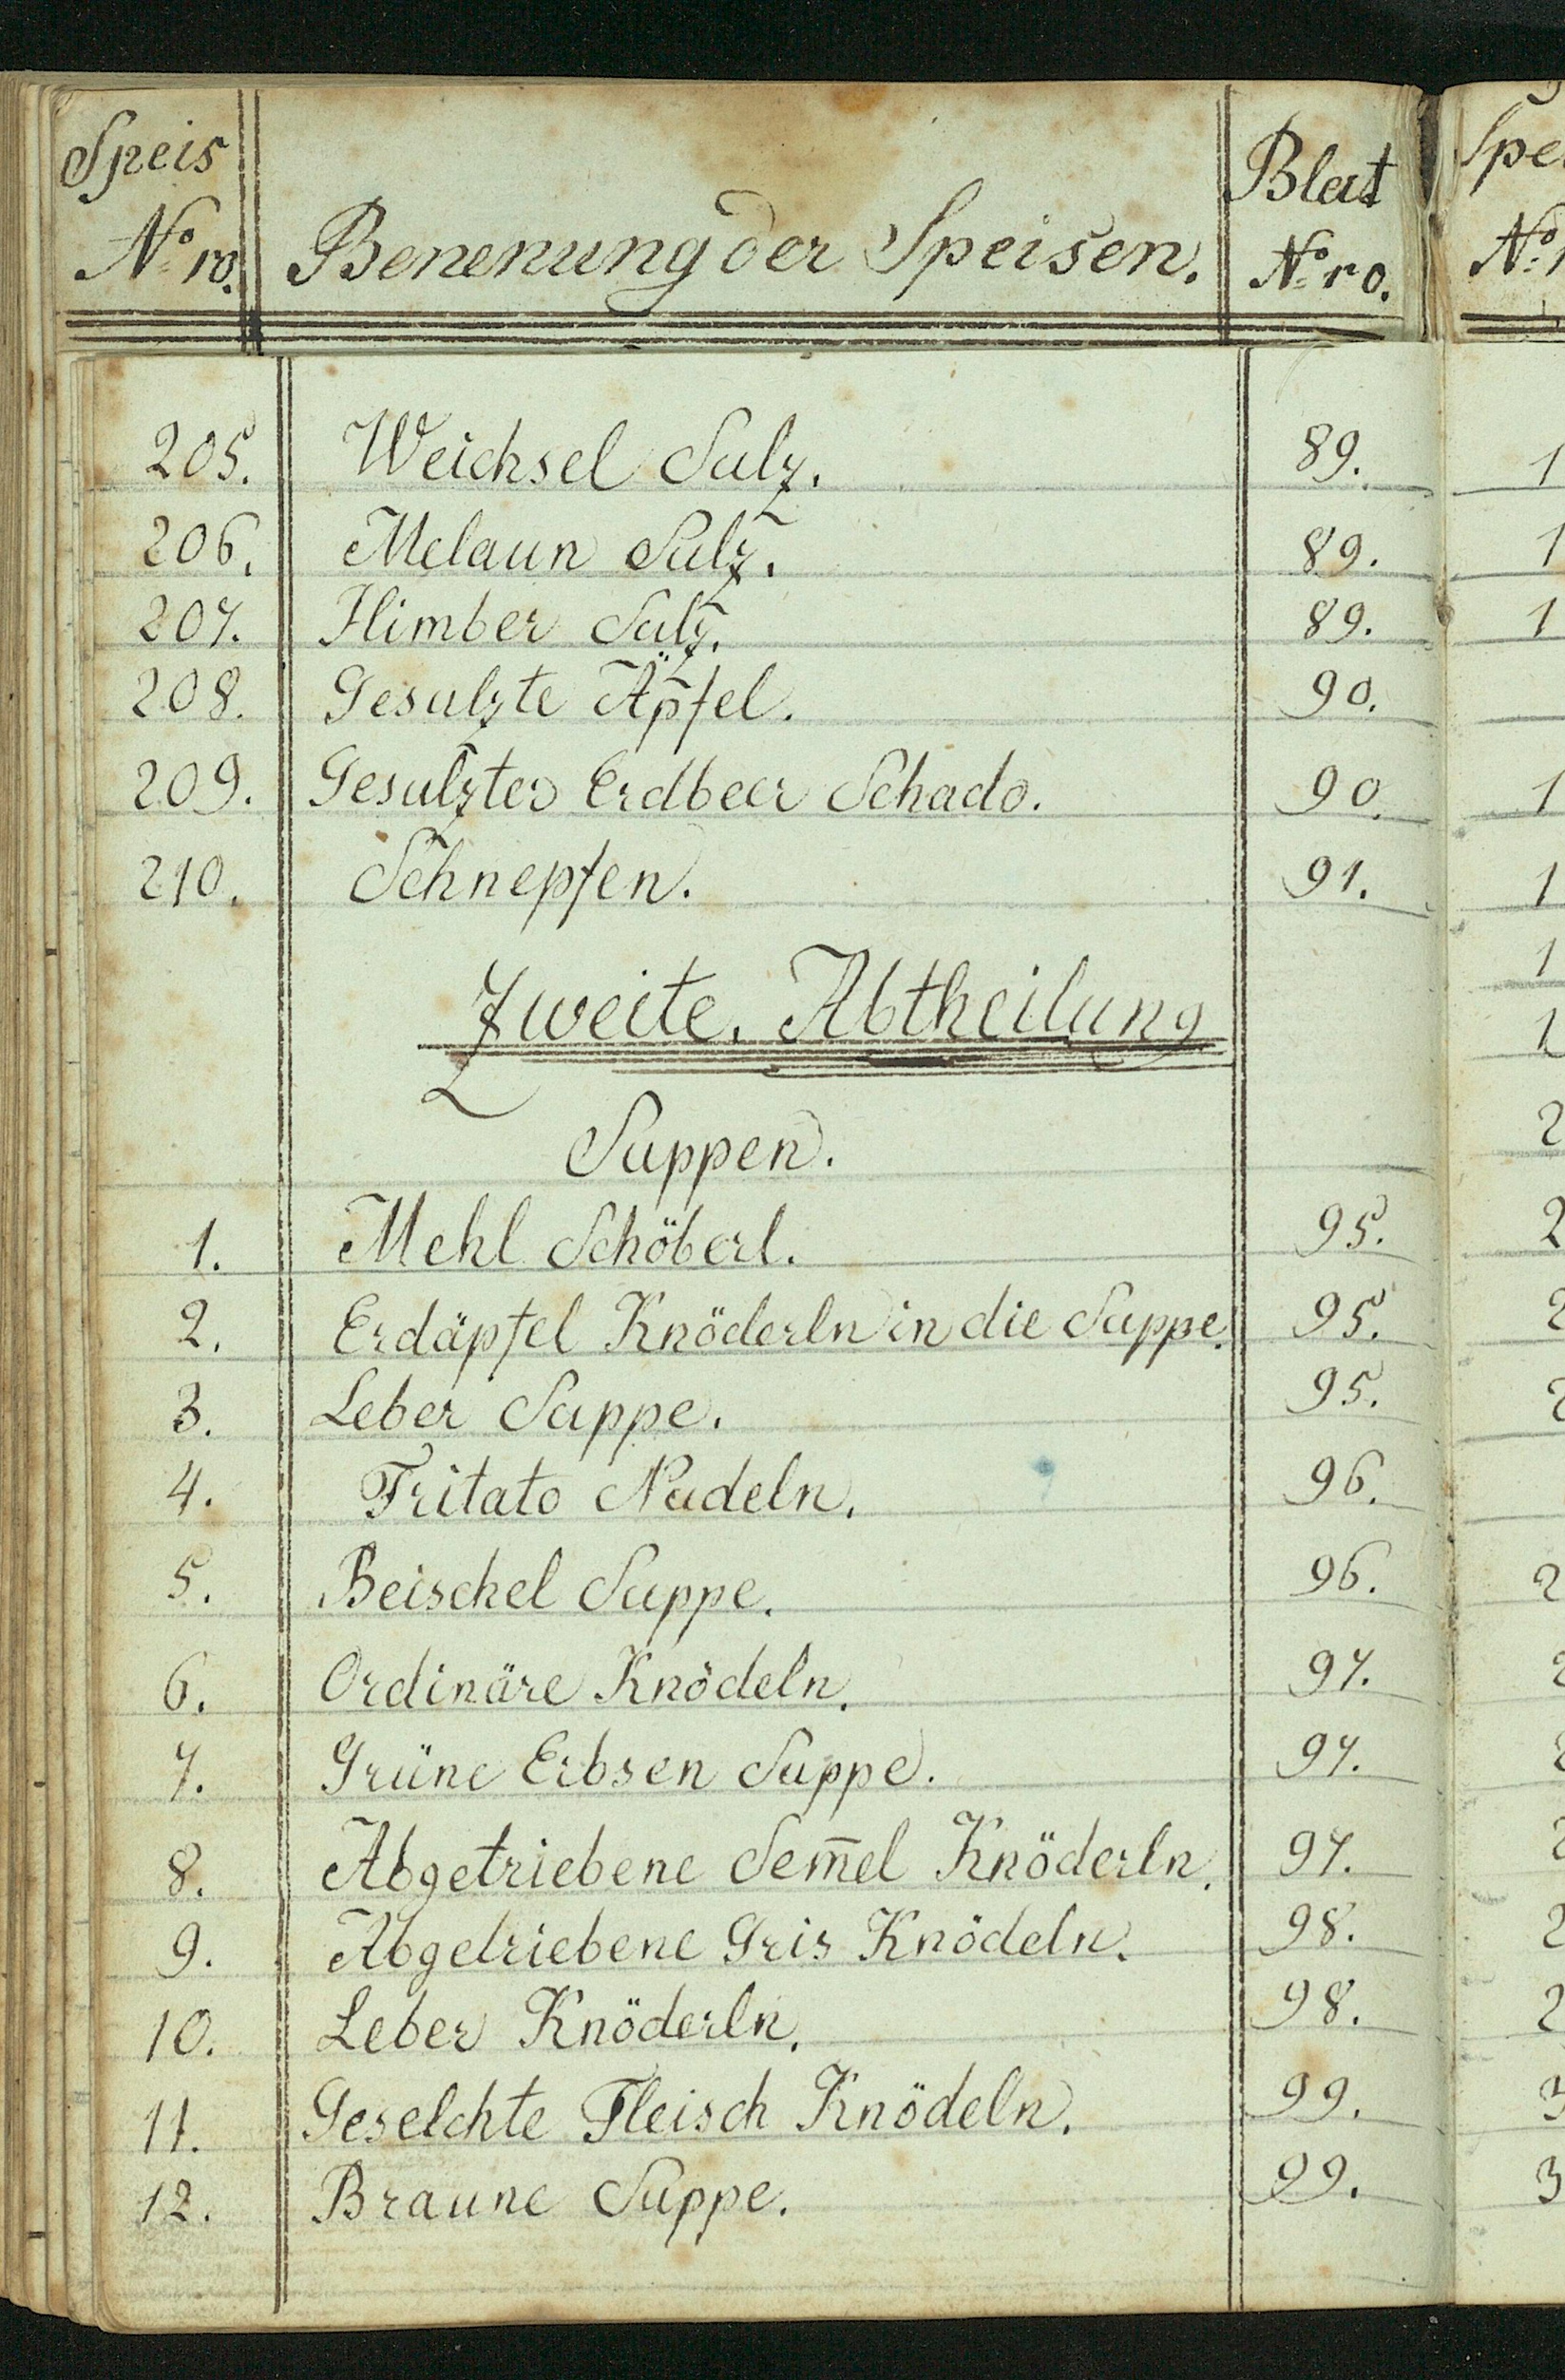 Speis Nº ro. Benenung der Speisen. Blat Nº ro.
205. Weichsel Sulz. 89.
206. Melaun Sulz. 89.
207. Himber Sulz. 89.
208. Gesulzte Äpfel. 90.
209. Gesulzter Erdbeer Schado. 90.
210. Schnepfen. 91.
Zweite. Abtheilung
Suppen.
1. Mehl Schöberl. 95.
2. Erdäpfel Knöderln in die Suppe. 95.
3. Leber Suppe. 95.
4. Fritato Nudeln. 96.
5. Beischel Suppe. 96.
6. Ordinäre Knödeln. 97.
7. Grüne Erbsen Suppe. 97.
8. Abgetriebene Sem̅el Knöderln. 97.
9. Abgetriebene Gris Knödeln. 98.
10. Leber Knöderln. 98.
11. Geselchte Fleisch Knödeln. 99.
12. Braune Suppe. 99.